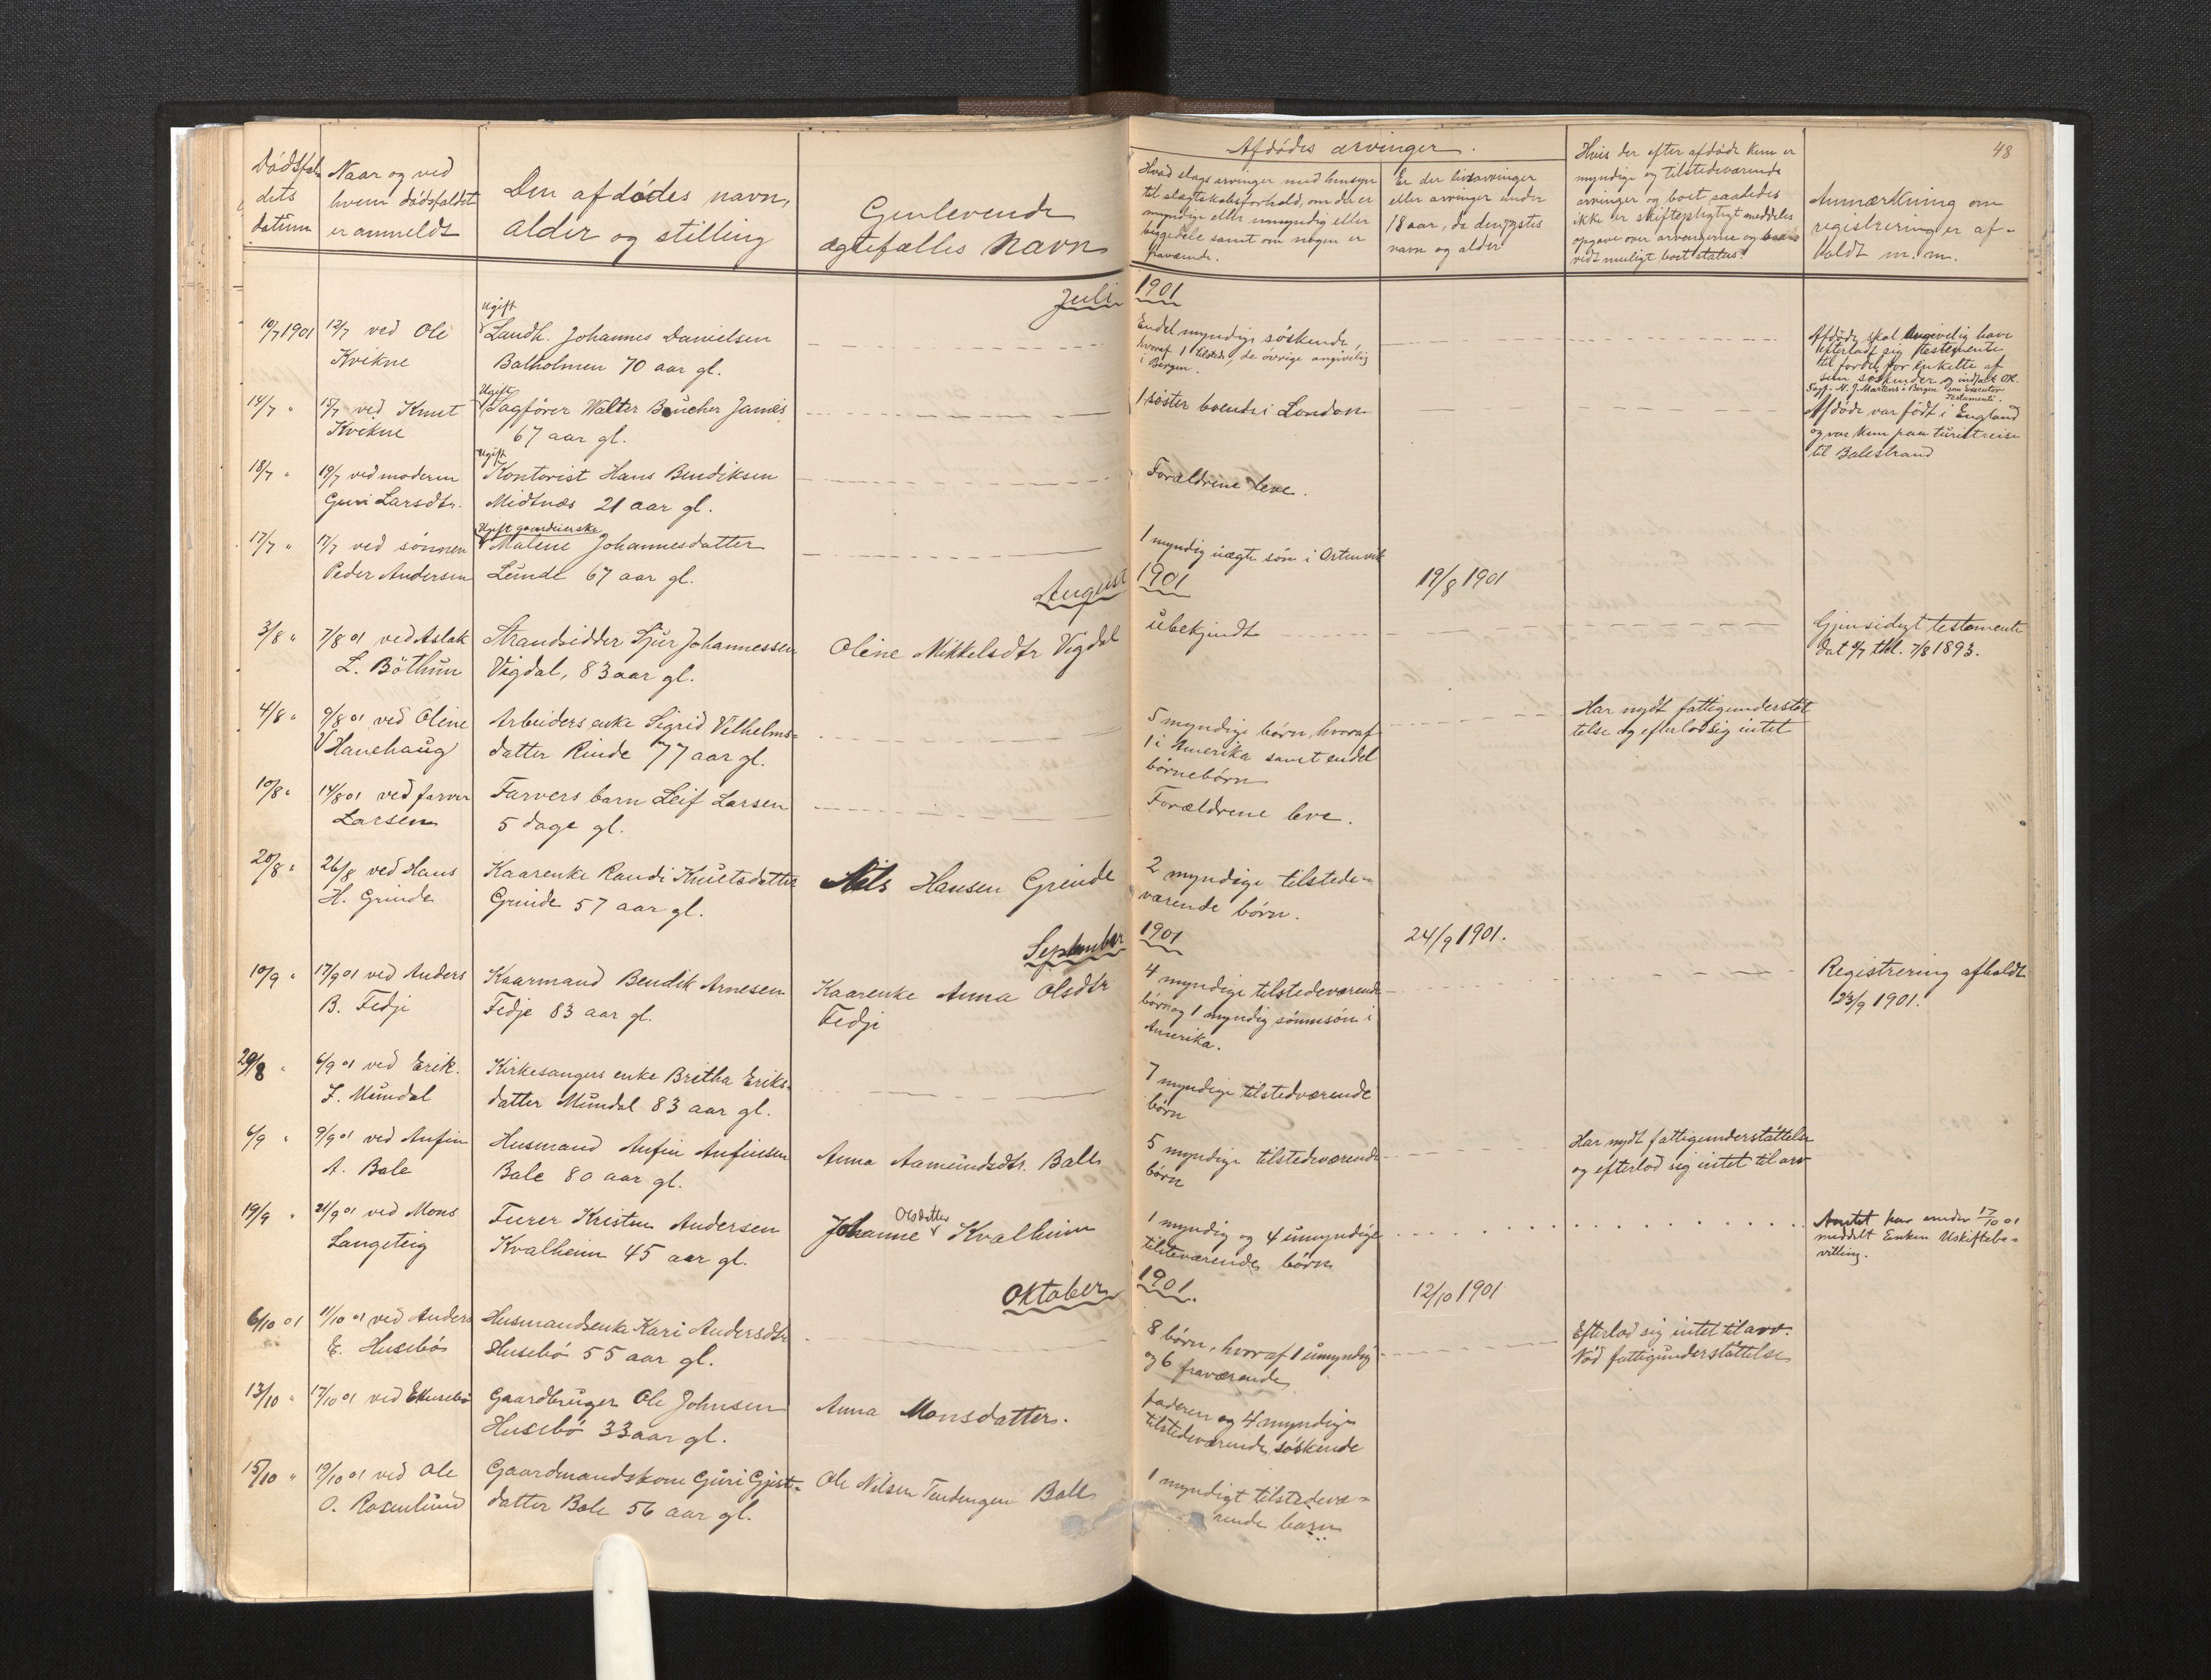 48
Dödsfal-
dets
datum
Naar og ved
hvem dödsfaldet
er anmeldt
Den afdödes navn,
alder og stilling
Genlevende
ægtefælles navn
Afdödes arvinger.
Hvad slags arvinger med hensyn
til slægtskabsforhold, om de er
myndige eller umyndig eller
beggedele samt om nogen er
fraværende.
Er der livsarvinger
eller arvinger under
18 aar, da den yngstes
navn og alder
Hvis der efter afdöde kun er
myndige og tilstedeværende
arvinger og boet saaledes
ikke er skiftepligtigt meddeles
opgave over arvingerne og
vidt muligt boets status.
Anmærkning om
registrering er af-
holdt m.m.
Juli 1901
10/7 1901
12/7 ved Ole
Kvikne
Ugift
Landh. Johannes Danielsen
Balholmen 70 aar gl.
Endel myndige söskende,
hvoraf 1 tilstede, de övrige angivelig
i Bergen.
Afdöde skal angivelig have
efterladt sig testemente
til fordel for enkelte af
sine söskender og indsat OR.
Sagf. N. J. Martens i Bergen som Executor
Testamenti.
14/7 "
15/7 ved Knut
Kvikne
Ugift
Sagförer Walter Boucher James
67 aar gl.
1 söster boende i London
Afdöde var födt i England
og var kun paa turistreise
til Balestrand
18/7 "
19/7 ved moderen
Guri Larsdtr.
Ugift
Kontorist Hans Bendiksen
Midtnæs 21 aar gl.
Forældrene leve.
17/7 "
17/7 ved sönnen
Peder Andersen
Ugift gaardeierske
Malene Johannesdatter
Lunde 67 aar gl.
1 myndig uægte sön i Ortnevik
August 1901
19/8 1901
3/8 "
7/8 01 ved Aslak
L. Böthun
Strandsidder Sjur Johannessen
Vigdal, 83 aar gl.
Oline Mikkelsdtr Vigdal
ubekjendt
Gjensidigt testamente
dat thl. 7/8 1893.
4/8 "
9/8 01 ved Oline
V Hanehaug
Arbeiders enke Sigrid Vilhelms-
datter Rinde 77 aar gl.
5 myndige börn, hvoraf
1 i Amerika samt endel
börnebörn
Har nydt fattigunderstöt
telse og efterlod sig intet
10/8 "
14/8 01 ved farver
Larsen
Farvers barn Leif Larsen
5 dage gl.
Forældrene leve.
20/8 "
26/8 ved Hans
H. Grinde
Kaarenke Randi Knutsdatter
Grinde 57 aar gl.
Nils Hansen Grinde
2 myndige tilstede-
værende börn.
September 1901
24/9 1901.
10/9 "
17/9 01 ved Anders
B. Fedje
Kaarmand Bendik Arnesen
Fedje 83 aar gl.
Kaarenke Anna Olsdtr
Fedje
4 myndige tilstedeværende
börn og 1 myndig sönnesön i
Amerika.
Registrering afholdt
23/9 1901.
29/8 "
6/9 01 ved Erik
J. Mundal
Kirkesangers enke Bretha Eriks-
datter Mundal 83 aar gl.
7 myndige tilstedværende
börn
6/9 "
9/9 01 ved Anfin
A. Bale
Husmand Anfin Anfinsen
Bale 80 aar gl.
Anna Aamundsdtr. Bale
5 myndige tilstedeværende
börn
Har nydt fattigunderstöttelse
og efterlod sig intet til arv
19/9 "
21/9 01 ved Mons
Langeteig
Furer Kristen Andersen
Kvalheim 45 aar gl.
Olsdatter
Johanne Kvalheim
1 myndig og 4 umyndige
tilsteværende börn
Amtet har under 17/10 01
meddelt Enken Uskiftebe-
villing.
Oktober 1901.
12/10 1901
6/10 01
11/10 01 ved Anders
E. Husebö
Husmandsenke Kari Andersdtr
Husebö 55 aar gl.
8 börn, hvoraf 1 umyndig
og 6 fraværende
Efterlod sig intet til arv.
Nöd fattigunderstöttelse
13/10 "
17/10 01 ved EHusebö
Gaardbruger Ole Johnsen
Husebö 33 aar gl.
Anna Monsdatter.
faderen og 4 myndige
tilstedeværende söskende
15/10 "
19/10 01 ved Ole
O. Rosenlund
Gaardmandskone Guri Gjest-
datter Bale 56 aar gl.
Ole Nilsen Bale
1 myndigt tilstedevæ-
rende barn